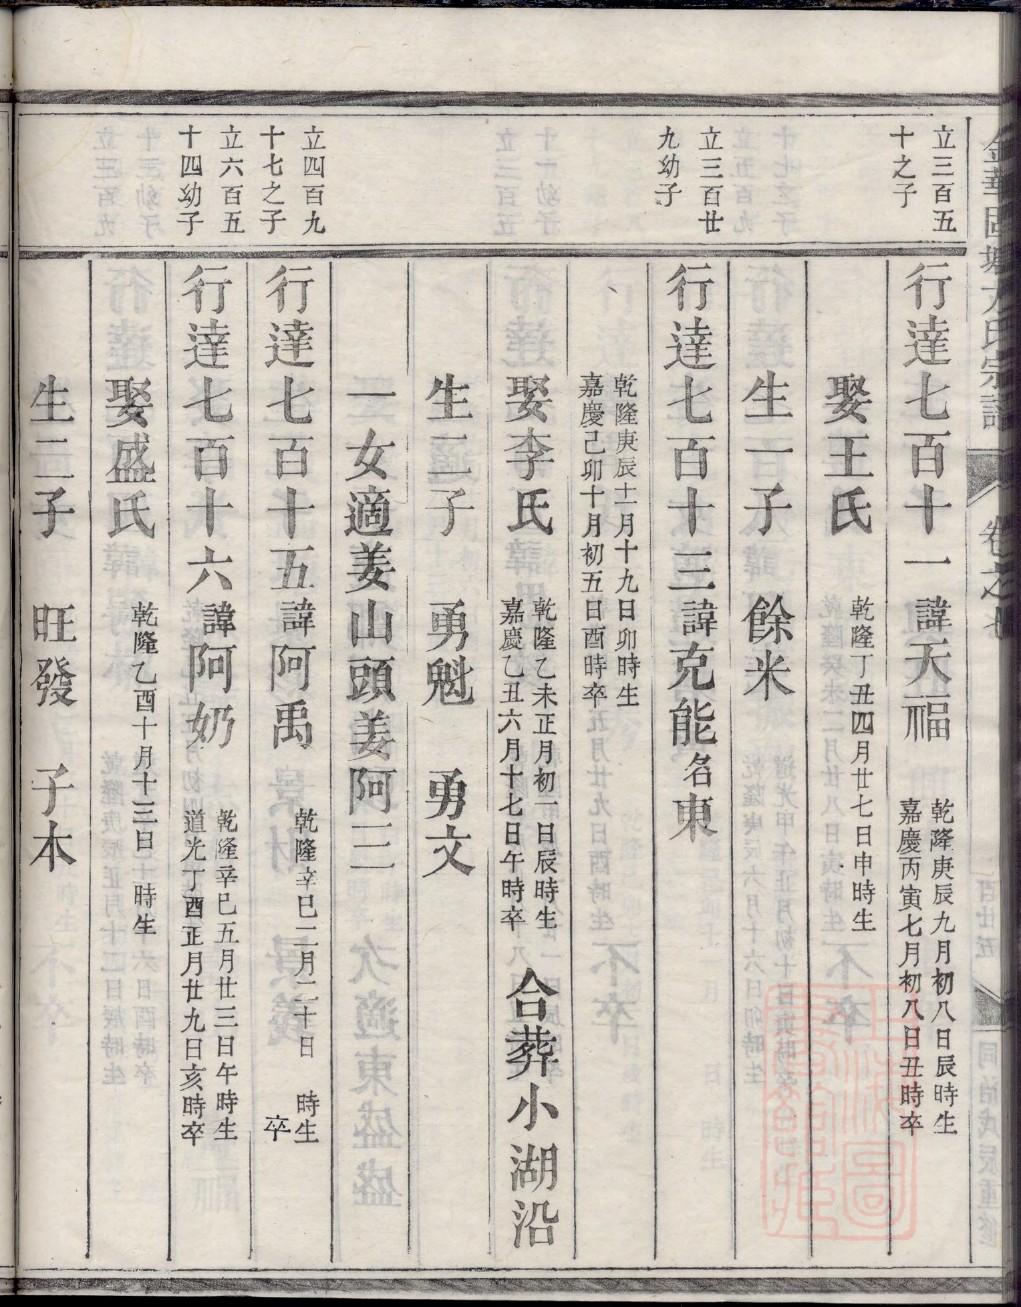 立三百五
十之子
行達七百十一諱天福 乾隆庚辰九月初八日辰時生
嘉慶丙寅七月初八日丑時卒
娶王氏 乾隆丁丑四月廿七日申時生
生一子 餘米
立三百廿
九幼子
行達七百十三諱克能名東
乾隆庚辰十一月十九日卯時生
嘉慶己卯十月初五日酉時卒
娶李氏 乾隆乙未正月初一日辰時生
嘉慶乙丑六月十七日午時卒
合葬小湖沿
生二子 勇魁 勇文
一女適姜山頭姜阿三
立四百九
十七之子
行達七百十五諱阿禹 乾隆辛巳二月二十日 時生
卒
立六百五
十四幼子
行達七百十六諱阿奶 乾隆辛巳五月廿三日午時生
道光丁酉正月廿九日亥時卒
娶盛氏 乾隆乙酉十月十三日 時生
生二子 旺發 子本